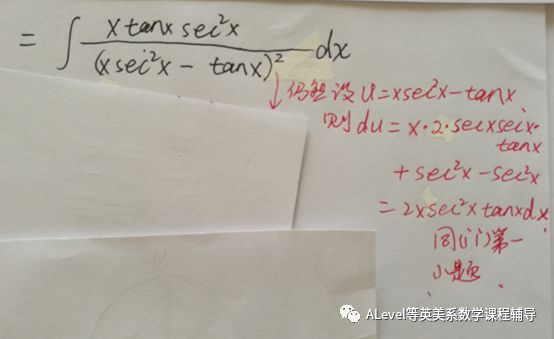 = ∫ x tanx sec²x / (x sec²x − tanx)² dx
↓仍然设 u = x sec²x − tanx
则 du = x·2·secx secx·
tanx
+ sec²x − sec²x
= 2x sec²x tanx dx
同(i)第一
小题
ALevel等英美系数学课程辅导